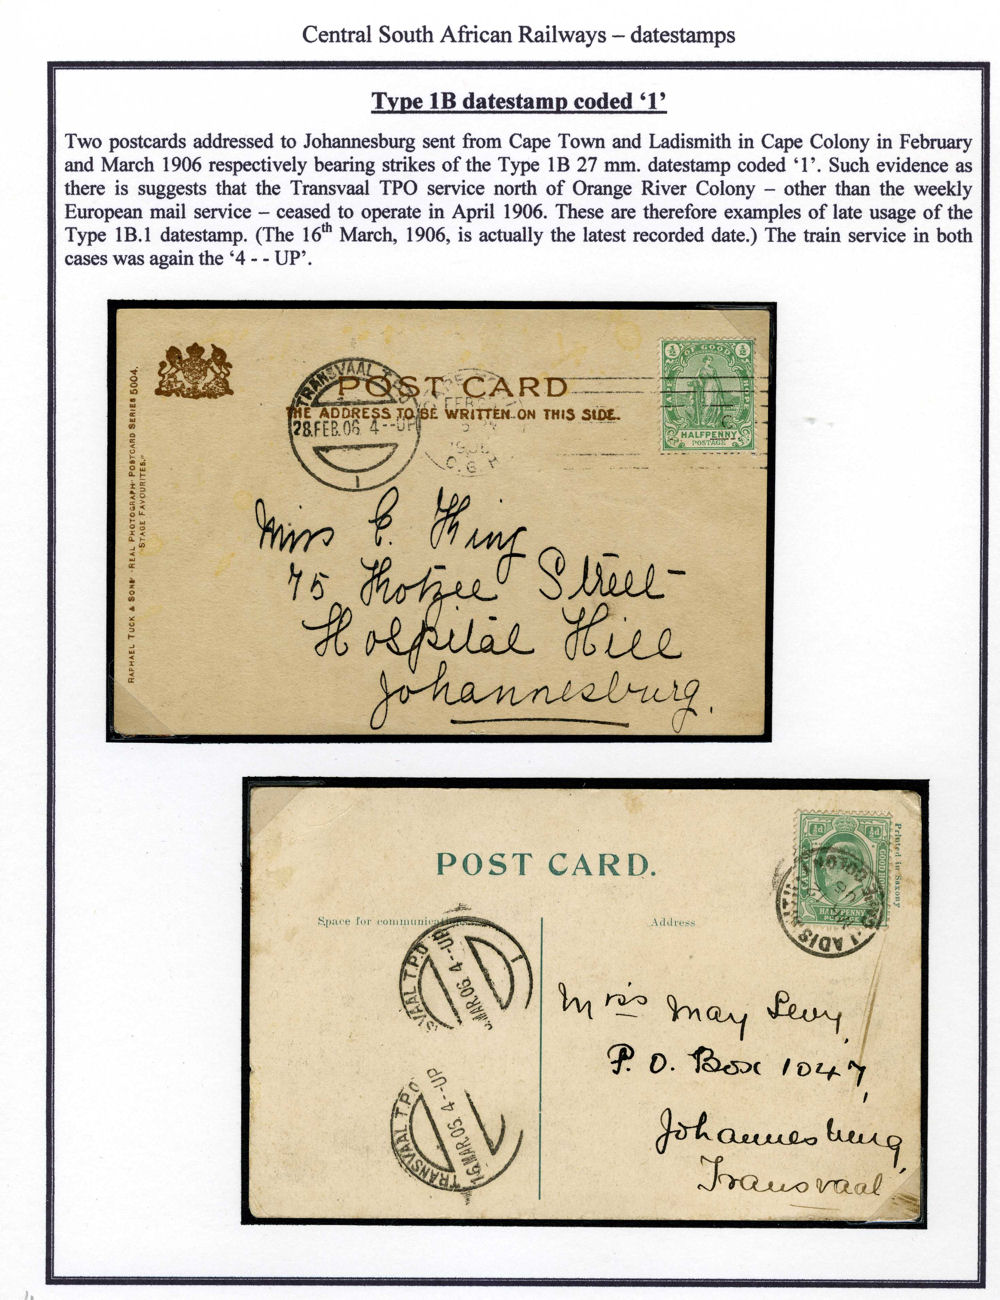 Central South African Railways – datestamps
Type 1B datestamp coded ‘1’
Two postcards addressed to Johannesburg sent from Cape Town and Ladismith in Cape Colony in February
and March 1906 respectively bearing strikes of the Type 1B 27 mm. datestamp coded ‘1’. Such evidence as
there is suggests that the Transvaal TPO service north of Orange River Colony – other than the weekly
European mail service – ceased to operate in April 1906. These are therefore examples of late usage of the
Type 1B.1 datestamp. (The 16th March, 1906, is actually the latest recorded date.) The train service in both
cases was again the ‘4 - - UP’.
RAPHAEL TUCK & SONS' "REAL PHOTOGRAPH" POSTCARD SERIES 5004.
"STAGE FAVOURITES."
POST CARD
THE ADDRESS TO BE WRITTEN ON THIS SIDE.
TRANSVAAL T.P.O
28.FEB.06. 4--UP
1
FEB
C.G.H
½
OF GOOD
½
HALFPENNY
POSTAGE
Miss C. King
75 Kotzee Street
Hospital Hill
Johannesburg.
POST CARD.
Printed in Saxony
½d
½d
HALFPENNY
POSTAGE
LADISMITH
Space for communication
Address
SVAAL T.P.O
MAR.06. 4--UP
1
TRANSVAAL T.P.O
16 MAR.06. 4--UP
Mrs May Levy,
P. O. Box 1047,
Johannesburg,
Transvaal